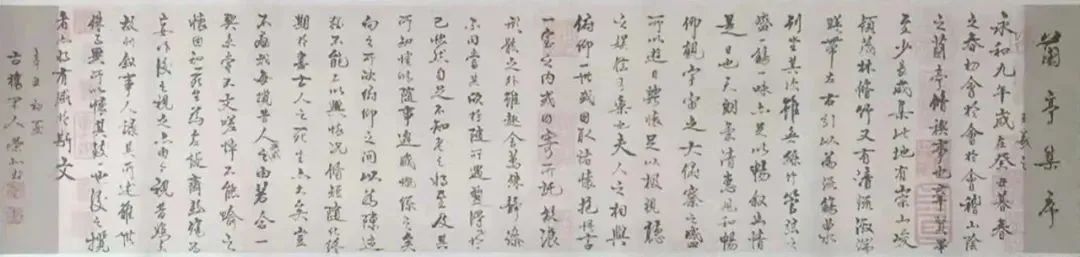 蘭亭集序
王羲之
永和九年歲在癸丑暮春
之春初會於會稽山陰
之蘭亭修禊事也羣賢畢
至少長咸集此地有崇山峻
領茂林修竹又有清流激湍
暎帶左右引以為流觴曲水
列坐其次雖無絲竹管弦之
盛觴一詠亦足以暢敘幽情
是日也天朗氣清惠風和暢
仰觀宇宙之大俯察之盛
所以遊目騁懷足以極視聽
之娛信可樂也夫人之相與
俯仰一世或因取諸懷抱悟言
一室之內或因寄所託放浪
形骸之外雖趣舍萬殊靜躁
不同當其欣於所遇暫得於
己然自足不知老之將至及其
所之既惓情隨事遷感慨係之矣
向之所欣俯仰之間以為陳迹
猶不能不以興懷況脩短隨化終
期於盡古人云死生亦大矣豈
不痛哉每攬昔人興感之由若合一
契未嘗不文嗟悼不能喻之
懷固知死生為虛誕齊彭殤為
妄作後之視今亦由今之視昔悲夫
故列敘事人錄其所述雖世
殊事異所以懷其致一也後之攬
者亦將有感於斯文
辛丑初夏
古樓中人